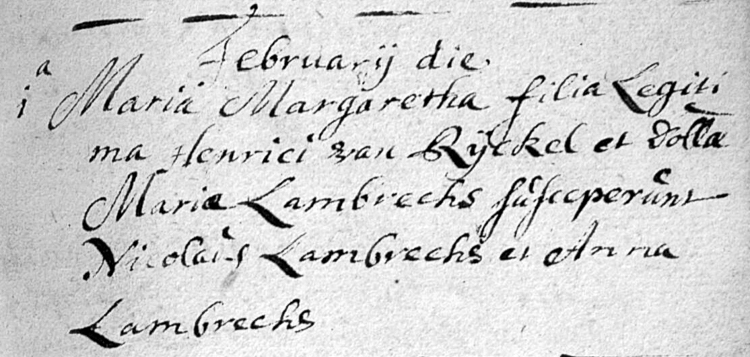 February die
1a Maria Margaretha filia Legiti
ma Henrici van Rÿckel et dollæ
Mariæ Lambrechs susceperunt
Nicolaus Lambrechs et Anna
Lambrechs